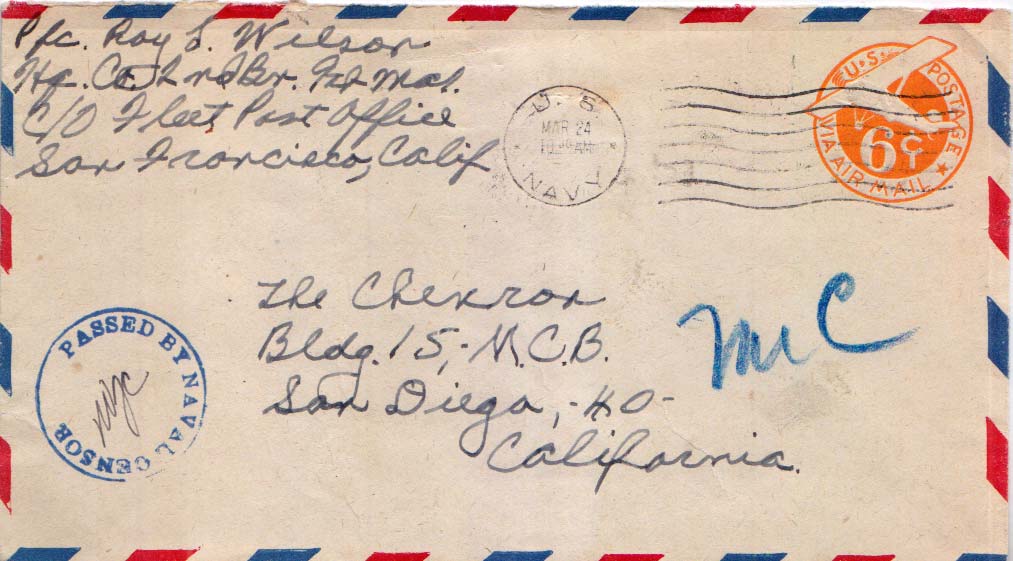 Pfc. Roy L. Wilson
Hq. Co. 2nd Bn. 22d Mar.
C/O Fleet Post Office
San Francisco, Calif
U.S. NAVY
MAR 24
10 AM
U.S. POSTAGE
6C
VIA AIR MAIL
The Chevron
Bldg. 15,- M.C.B.
San Diego, -40-
California.
MC
PASSED BY NAVAL CENSOR